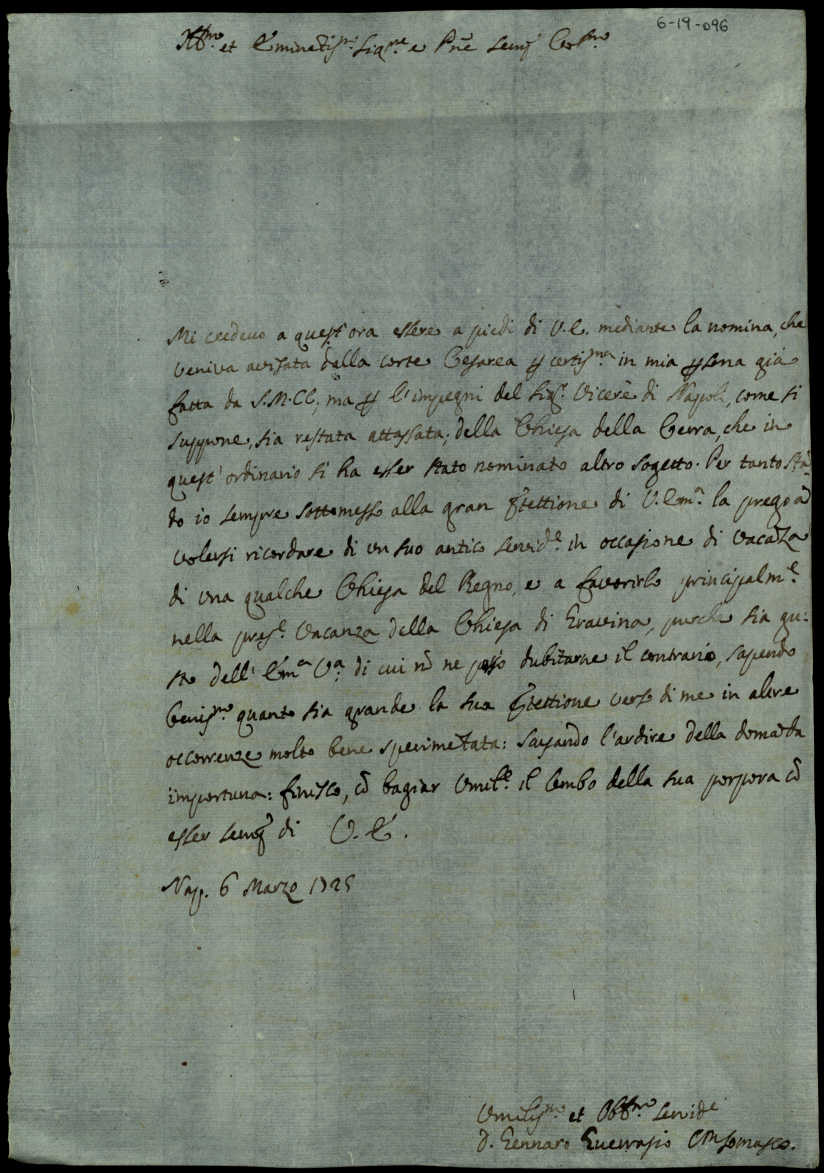 6-19-096
Ill.mo et Eminētiss.mo Sig.re e Prōe sempr Col.mo
Mi credevo a quest'ora essere a piedi di V.E. mediante la nomina, che
veniva avisata dalla corte Cesarea p certiss.ma in mia psona già
fatta da S.M.CC., ma p l'impegni del Sig.r Vicerè di Napoli, come si
suppone, sia restata attassata, della Chiesa della Cerra, che in
quest'ordinario si ha esser stato nominato altro sogetto. Per tanto stā=
do io sempre sottomesso alla gran ptettione di V.Em.a la prego à
volersi ricordare di un suo antico servid.e in occasione di vacāza
di una qualche Chiesa del Regno, e a favorirlo principalm.e
nella pres.e vacanza della Chiesa di Gravina, purche sia gu=
sto dell'Em.a V.a di cui nō ne posso dubitarne il contrario, sapendo
benis.mo quanto sia grande la sua ptettione verso di me in altre
occorrenze molto bene sperimētata: scusando l'ardire della domāda
importuna: finisco, cō bagiar umil.e il lembo della sua porpora cō
esser sempr di V.E.
Nap. 6 Marzo 1725
Umiliss.mo et Obb.mo Servid.e
D. Gennaro Guerrasio Somasco.